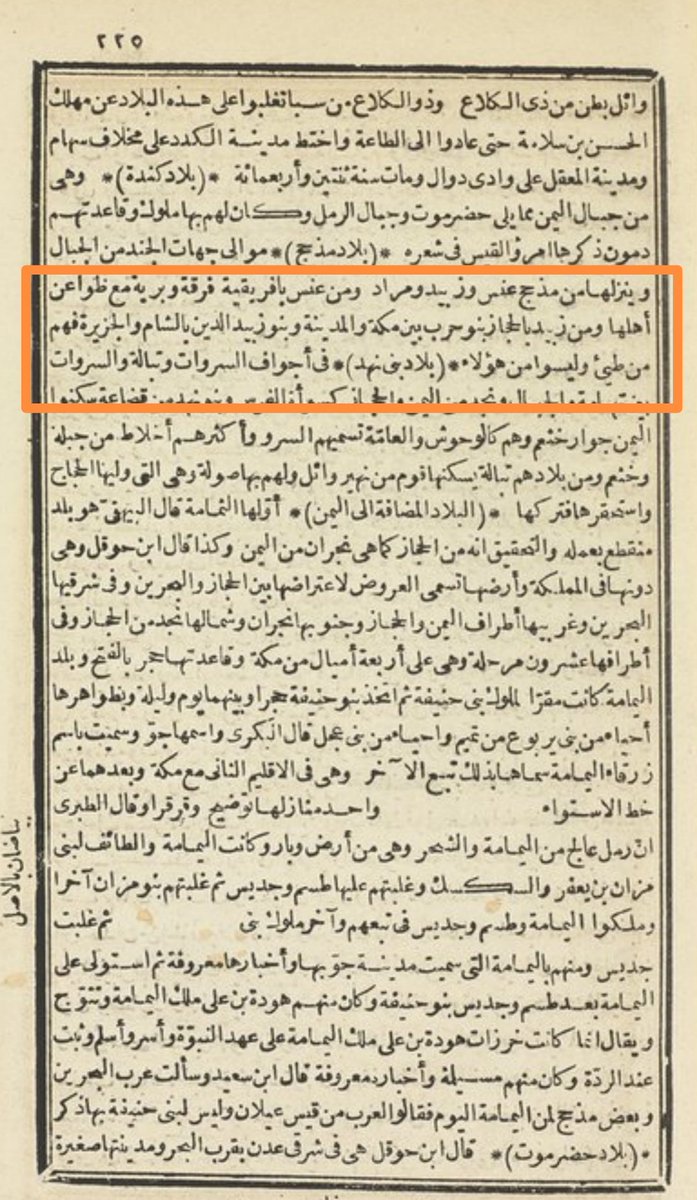 ٢٢٥
وائل بطن من ذى الكلاع وذو الكلاع من سبا تغلبوا على هذه البلاد عن مهلك
الحسن بن سلامة حتى عادوا الى الطاعة واختط مدينة الكدد على مخلاف سهام
ومدينة المعقل على وادى دوال ومات سنة ثنتين وأربعمائة *(بلاد كندة)* وهى
من جبال اليمن مما يلى حضرموت وجبال الرمل وكان لهم بها ملوك وقاعدتهم
دمون ذكرها امرؤ القيس فى شعره *(بلاد مذحج)* موالى جهات الجند من الجبال
وينزلها من مذحج عنس وزبيد ومراد ومن عنس بافريقية فرقة وبرية مع ظواعن
أهلها ومن زبيد بالحجاز بنو حرب بين مكة والمدينة وبنو زبيد الذين بالشام والجزيرة فهم
من طيئ وليسوا من هؤلاء *(بلاد بنى نهد)* فى أجواف السروات وتبالة والسروات
بين تهامة والجبال ونجد من اليمن والحجاز كسرأة الفرس وبنو نهد من قضاعة سكنوا
اليمن جوار خثعم وهم كالوحوش والعامة تسميهم السرو وأكثرهم أخلاط من جبلة
وخثعم ومن بلادهم تبالة يسكنها قوم من نهير وائل ولهم بها صولة وهى التى وليها الحجاج
واستحقرها فتركها *(البلاد المضافة الى اليمن)* أولها الثمامة قال البيهقى هو بلد
منقطع بعمله والتحقيق انه من الحجاز كما هى نجران من اليمن وكذا قال ابن حوقل وهى
دونها فى المملكة وأرضها تسمى العروض لاعتراضها بين الحجاز والبحرين وفى شرقيها
البحرين وغربيها أطراف اليمن والحجاز وجنوبها نجران وشمالها نجد من الحجاز وفى
أطرافها عشرون مرحلة وهى على أربعة أميال من مكة وقاعدتها حجر بالفتح وبلد
اليمامة كانت مقرّا لملوك بنى حنيفة ثم اتخذ بنو حنيفة حجرا وبينهما يوم وليلة وبظواهرها
أحياء من بنى يربوع من تميم وأحياء من بنى عجل قال البكرى واسمها جوّ وسميت باسم
زرقاء اليمامة سماها بذلك تبع الآخر وهى فى الاقليم الثانى مع مكة وبعدهما عن
خط الاستواء واحد منازلها توضيح وقرقرا وقال الطبرى
انّ رمل عالج من اليمامة والشحر وهى من أرض وبار وكانت اليمامة والطائف لبنى
مزان بن يعفر والسكسك وغلبتهم عليها طسم وجديس ثم غلبتهم بنو هزان آخرا
وملكوا اليمامة وطسم وجديس فى تبعهم وآخر ملوك بنى ثم غلبت
جديس ومنهم باليمامة التى سميت مدينة جوّ بها وأخبارها معروفة ثم استولى على
اليمامة بعد طسم وجديس بنو حنيفة وكان منهم هودة بن على ملك اليمامة وتتوّج
ويقال انما كانت خرزات هودة بن على ملك اليمامة على عهد النبوّة وأسر وأسلم وثبت
عند الردّة وكان منهم مسيلمة وأخباره معروفة قال ابن سعيد وسألت عرب البحرين
وبعض مذحج لمن اليمامة اليوم فقالوا العرب من قيس عيلان وليس لبنى حنيفة بها ذكر
*(بلاد حضرموت)* قال ابن حوقل هى فى شرقى عدن بقرب البحر ومدينتها صغيرة
بياضان بالاصل